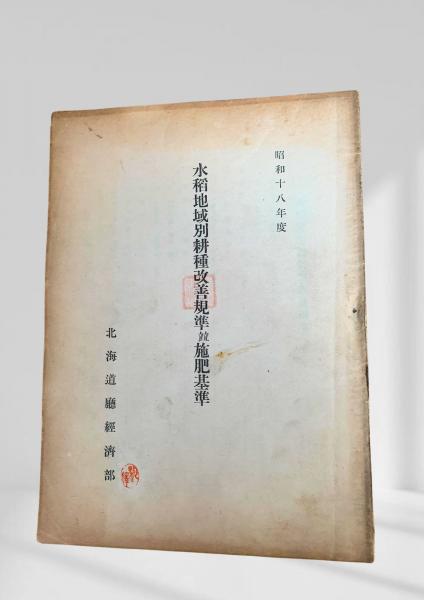 昭和十八年度
水稻地域別耕種改善規準竝施肥基準
北海道廳經濟部